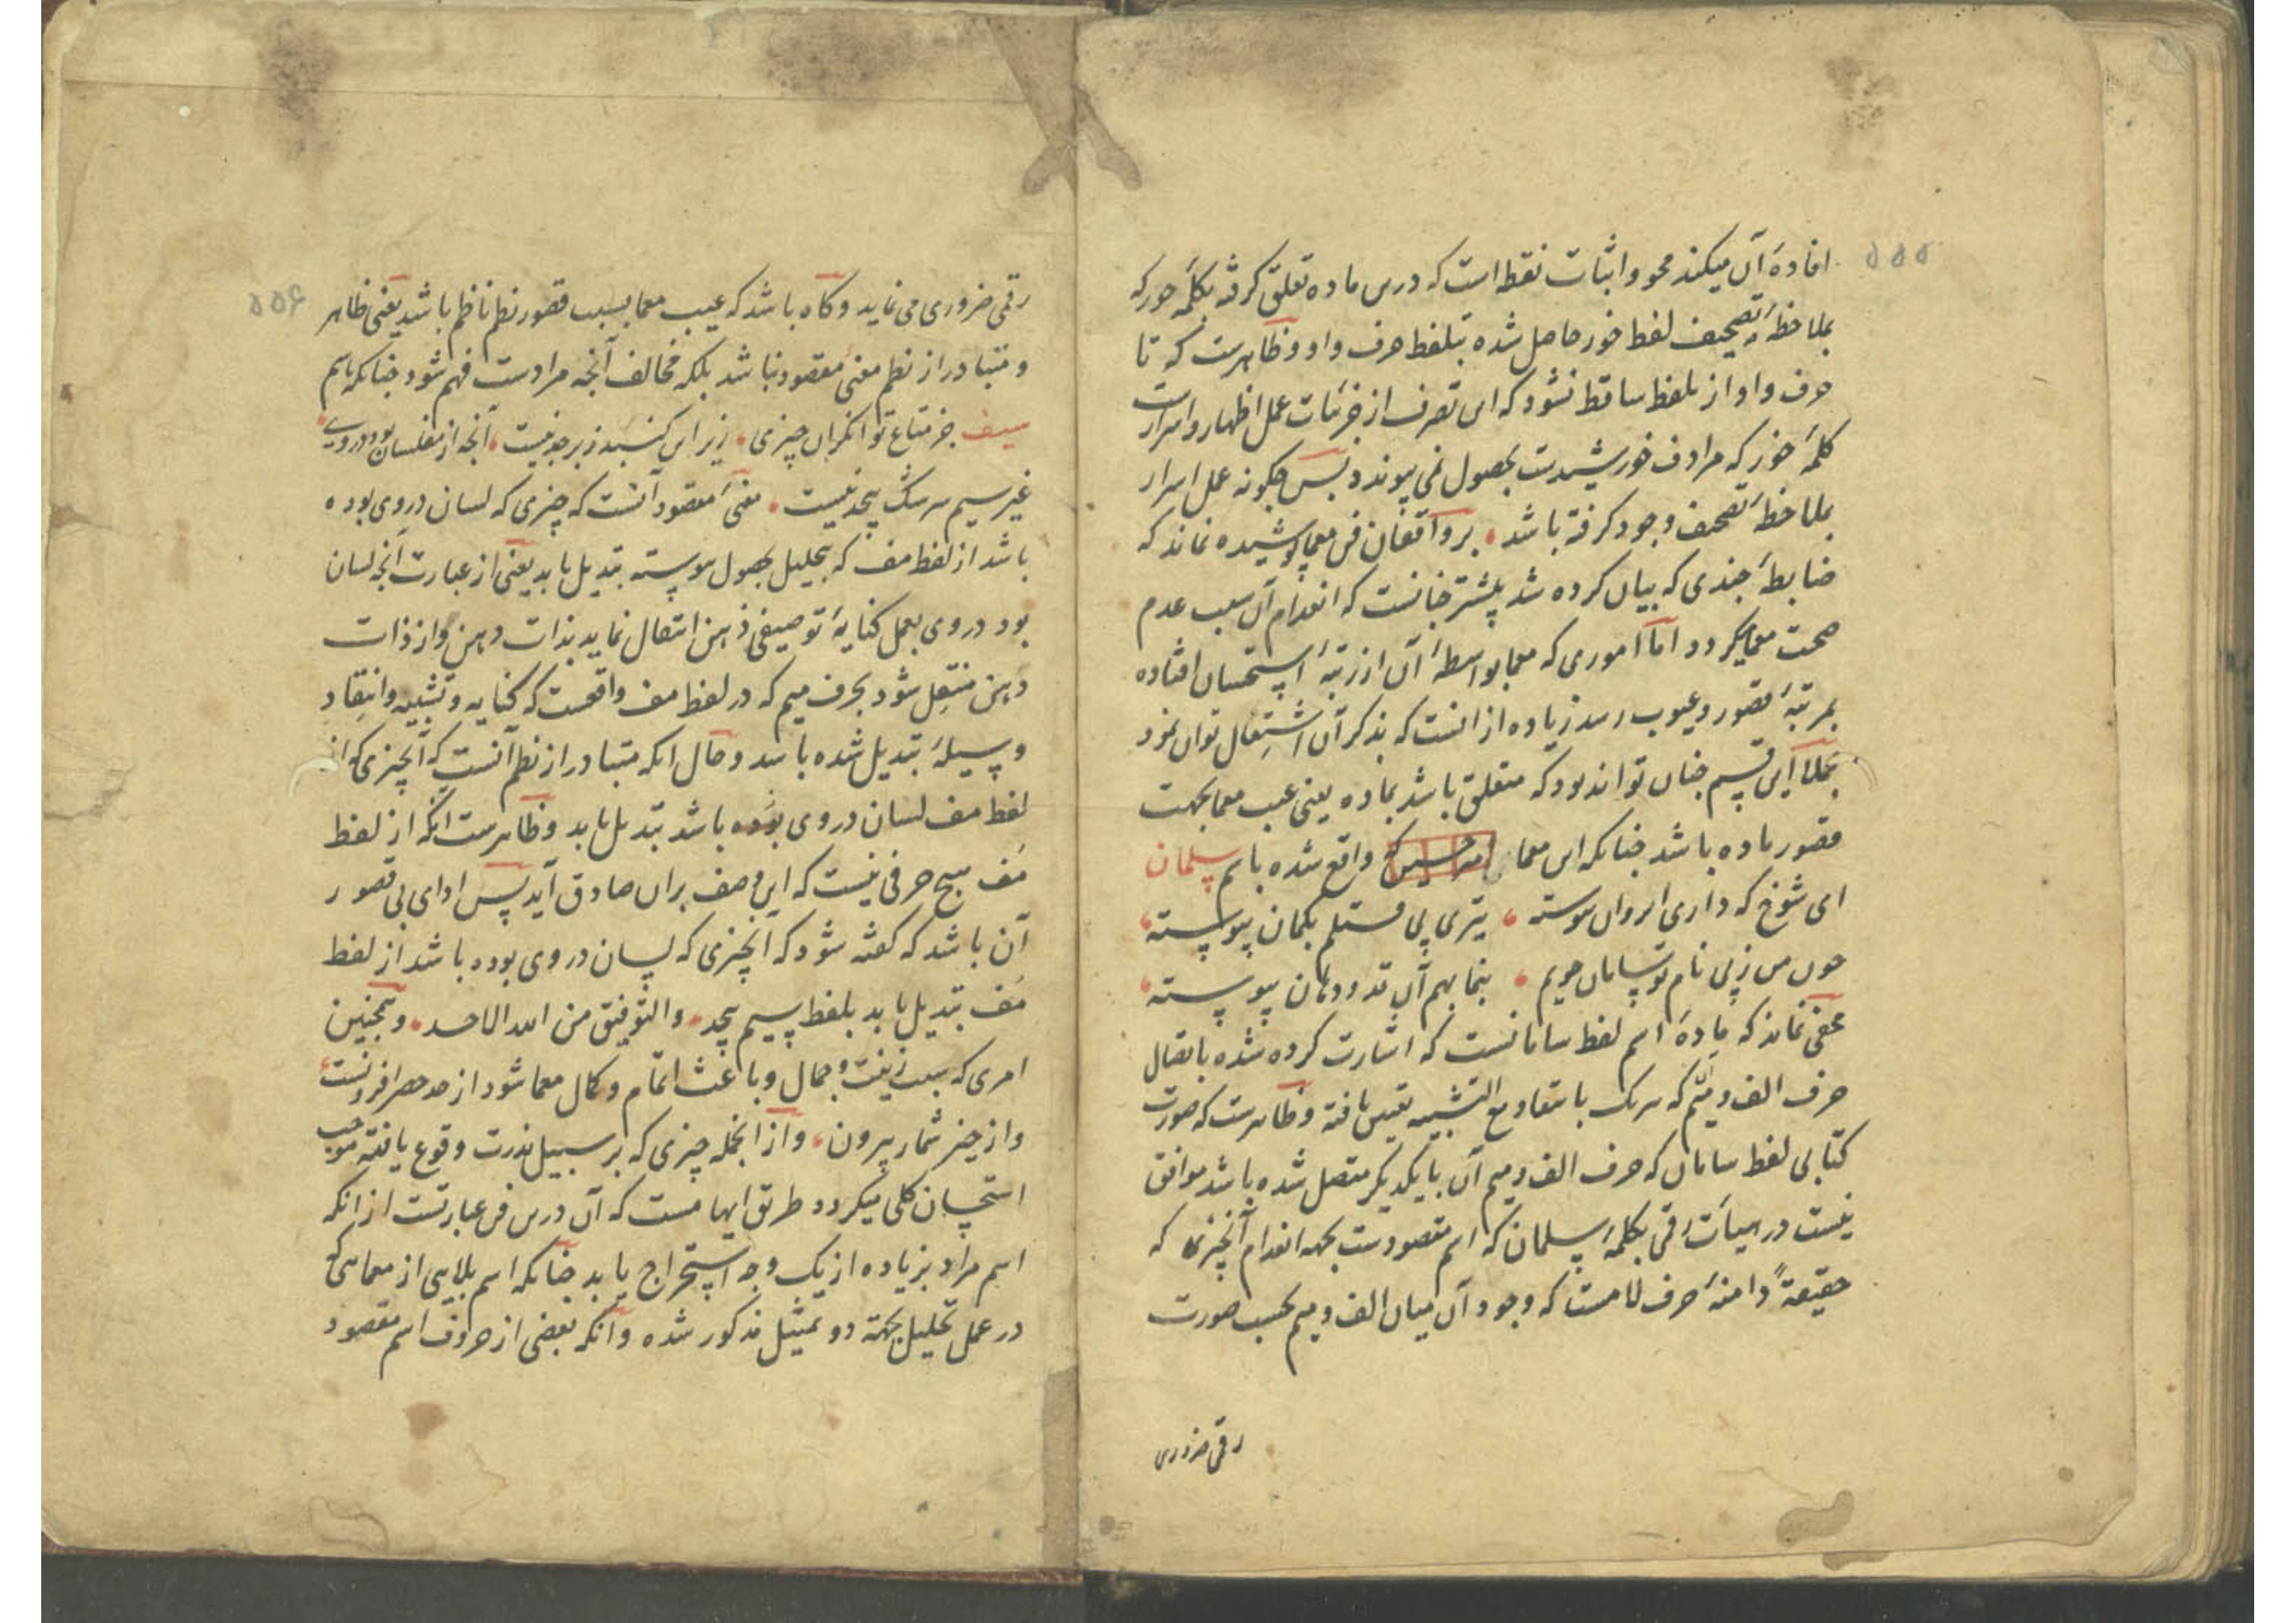 ۵۵۵
افادهٔ آن میکند محو و اثبات نقط است که درین ماده تعلق گرفته بکلمهٔ حور که
بملاحظهٔ تصحیف لفظ خور حاصل شده بتلفظ حرف واو و ظاهرست که تا
حرف واو از تلفظ ساقط نشود که این تصرف از جزئیات عمل اظهار و اسرارست
کلمهٔ خور که مرادف خورشیدست بحصول نمی پیوندد پس چکونه عمل اسرار
بملاحظهٔ تصحیف وجود کرفته باشد بر واقفان فن معما پوشیده نماند که
ضابطهٔ چندی که بیان کرده شد بیشتر چنانست که انعدام آن سبب عدم
صحت معما میکردد اما اموری که معما بواسطهٔ آن از رتبهٔ استحسان افتاده
بمرتبهٔ قصور و عیوب رسد زیاده از انست که بذکر آن اشتغال توان نمود
مجملا این قسم چنان تواند بود که متعلق باشد بماده یعنی عیب معما بجهت
قصور ماده باشد چنانکه این معما که واقع شده باسم سلمان
ای شوخ که داری ابروان پیوسته تیری پی قتلم بکمان پیوسته
چون من ز پی نام تو سامان جویم بنما بهم آن قد و دهان پیوسته
مخفی نماند که مادهٔ اسم لفظ سامانست که اشارت کرده شده باتصال
حرف الف و میم که هر یک بانتقاد مع التشبیه تعیین یافته و ظاهرست که صورت
کتابی لفظ سامان که حرف الف و میم آن با یکدیکر متصل شده باشد موافق
نیست در هیأت رقمی بکلمهٔ سلمان که اسم مقصودست بجهه انعدام آنچیزی که
حقیقةً دامنهٔ حرف لامست که وجود آن میان الف و میم بحسب صورت
رقمی ضروری
۵۵۶
رقمی ضروری می نماید و کاه باشد که عیب معما بسبب قصور نظم ناظم باشد یعنی ظاهر
و متبادر از نظم معنی مقصود نباشد بلکه مخالف آنچه مرادست فهم شود چنانکه باسم
سیف جز متاع توانکران چیزی زیر این کنبد زبرجد نیست آنچه از مفلسان بود در وی
غیر سیم سرشک بیحد نیست معنی مقصود آنست که چیزی که لسان در وی بوده
باشد از لفظ مف که بتحلیل بحصول پیوسته تبدیل یابد یعنی از عبارت آنچه لسان
بود در وی بعمل کنایهٔ توصیفی ذهن انتقال نماید بذات دهن و از ذات
دهن منتقل شود بحرف میم که در لفظ مف واقعست که کنایه و تشبیه و انتقاد
وسیلهٔ تبدیل شده باشد و حال انکه متبادر از نظم آنست که آنچیزی که از
لفظ مف لسان در وی بوده باشد تبدیل یابد و ظاهرست انکه از لفظ
مف هیچ حرفی نیست که این وصف بران صادق آید پس ادای بی قصور
آن باشد که کفته شود که آنچیزی که لسان در وی بوده باشد از لفظ
مف تبدیل یابد بلفظ سیم بیحد والتوفیق من الله الاحد و همچنین
امری که سبب زینت و جمال و باعث اتمام و کمال معما شود از حد حصر افزونست
و از حیز شمار بیرون و از انجمله چیزی که بر سبیل ندرت وقوع یافته موجب
استحسان کلی میکردد طریق ایهامست که آن درین فن عبارتست از انکه
اسم مراد بزیاده از یک وجه استخراج یابد چنانکه اسم بلابی از معمایی که
در عمل تحلیل بجهة دو تمثیل مذکور شده و آنکه بعضی از حروف اسم مقصود